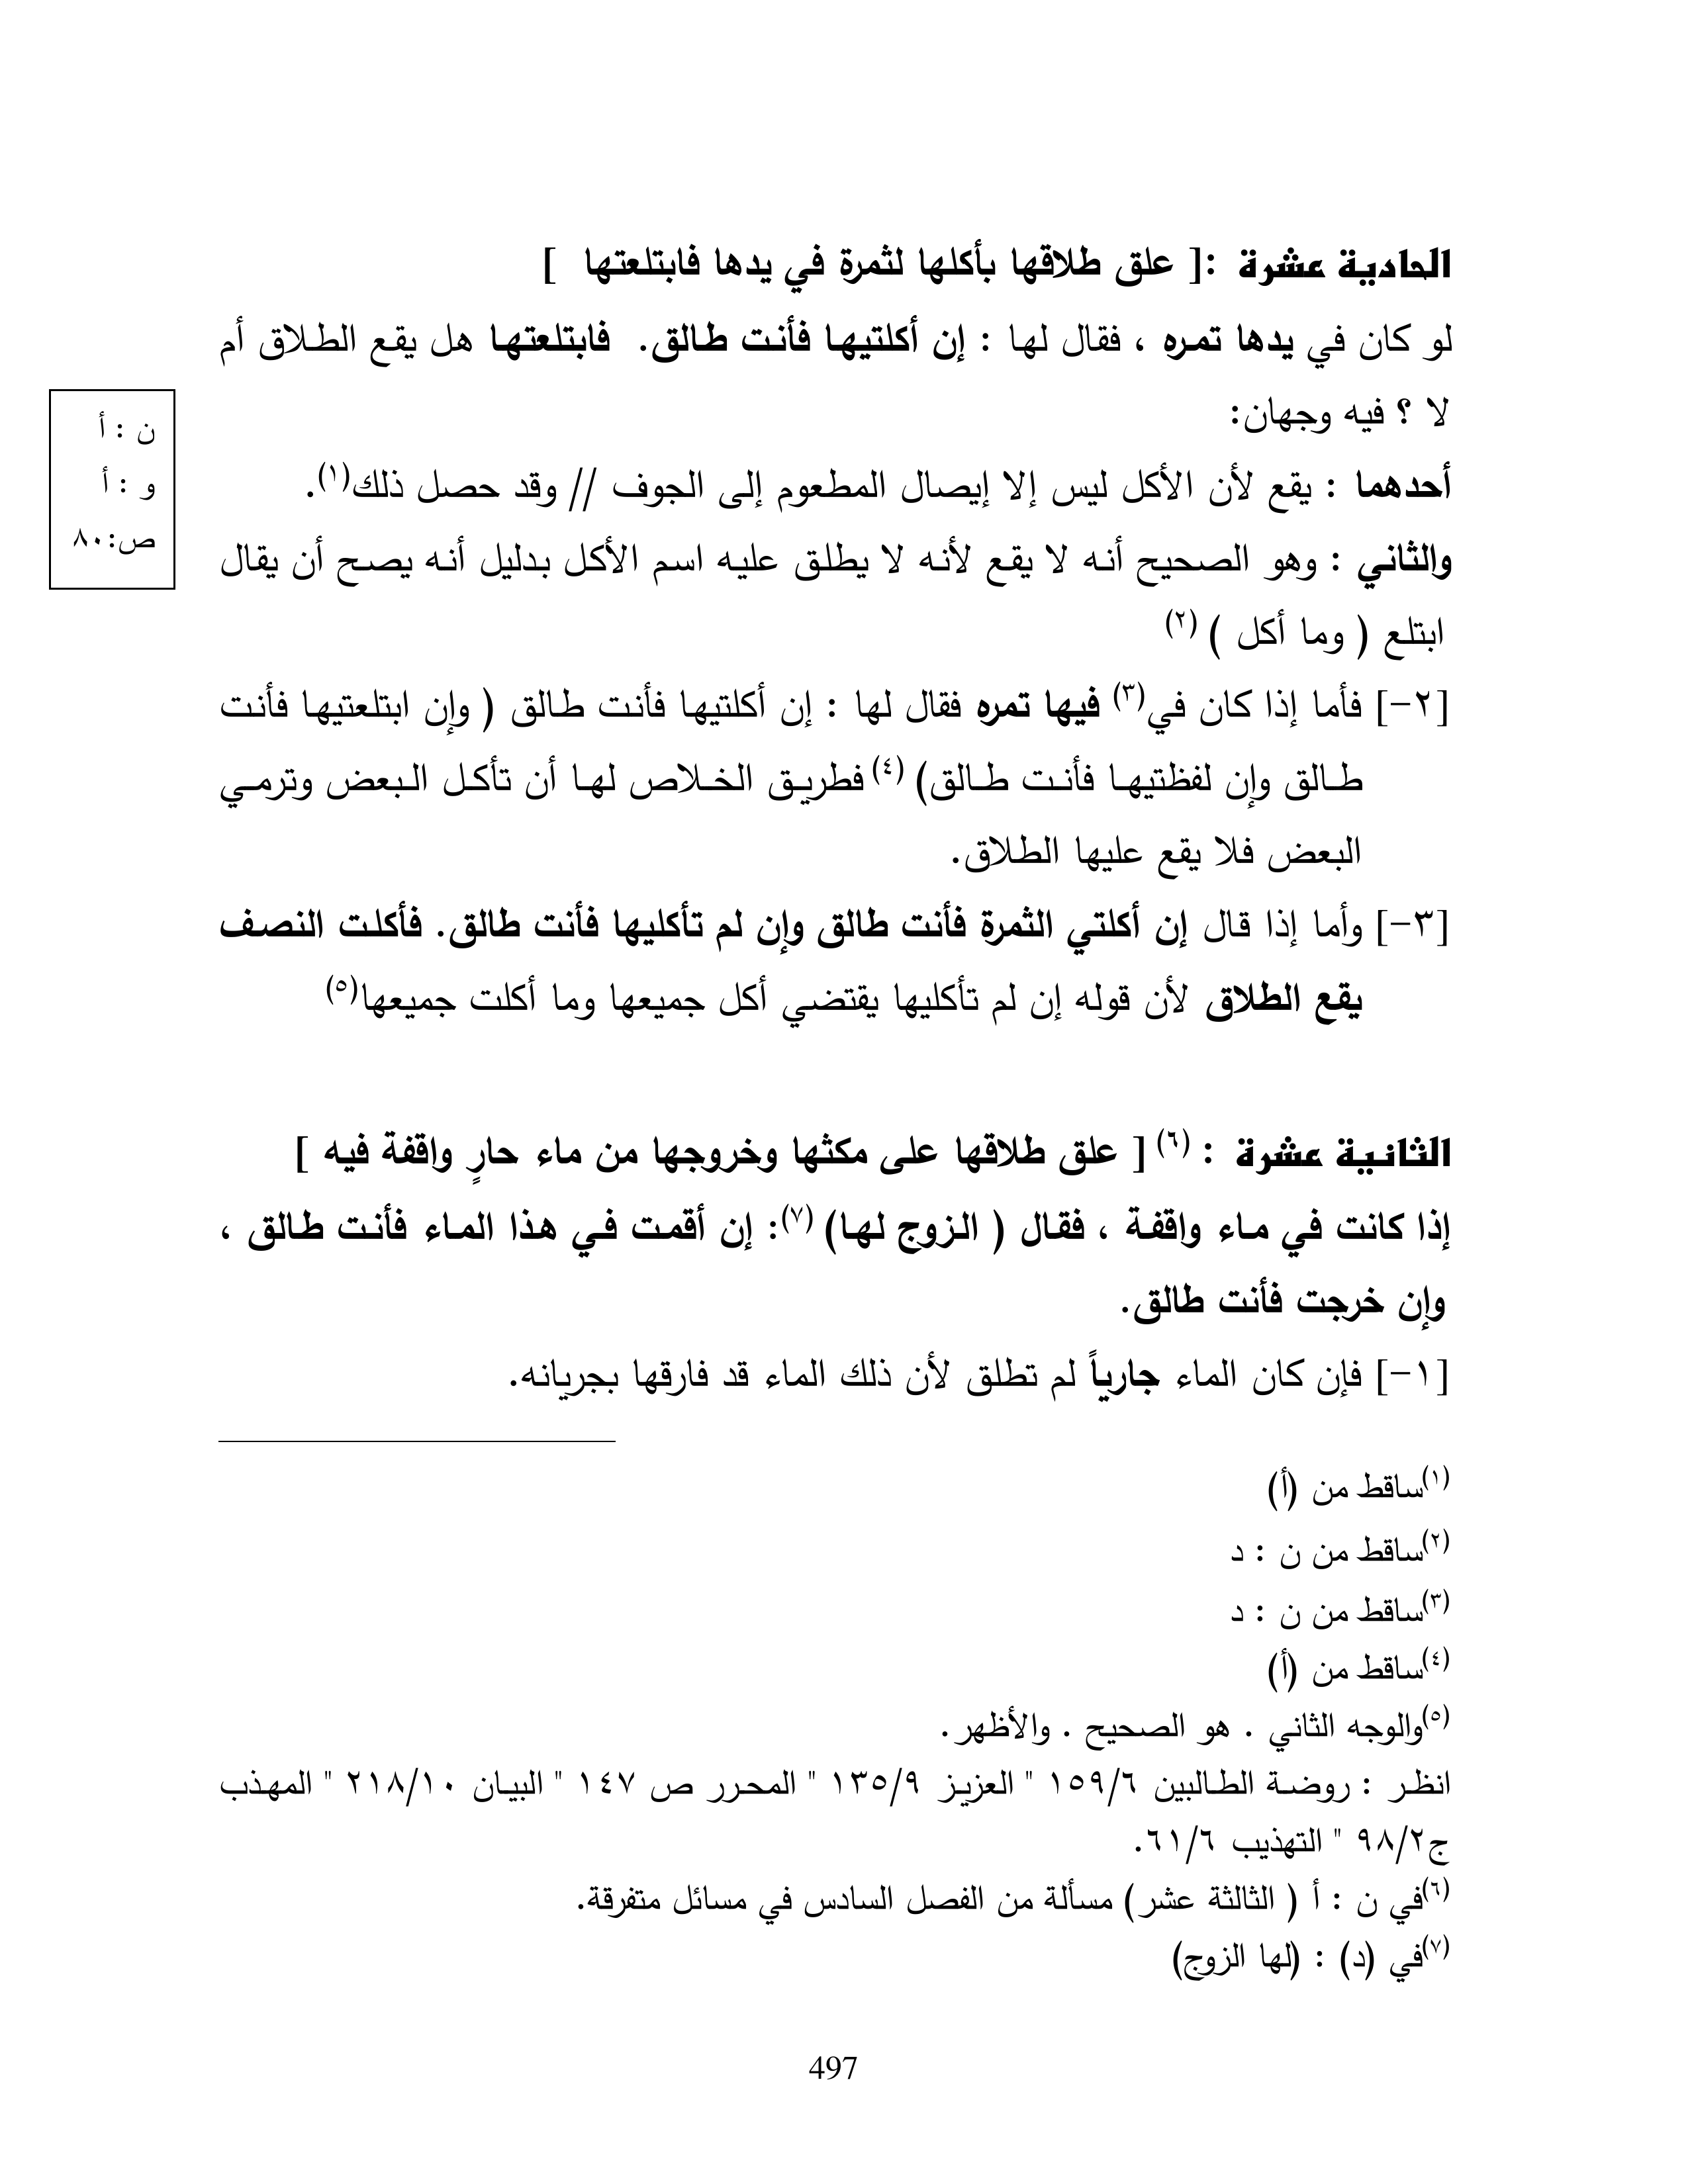 الحادية عشرة :[ علق طلاقها بأكلها لثمرة في يدها فابتلعتها ]
لو كان في يدها تمره ، فقال لها : إن أكلتيها فأنت طالق. فابتلعتها هل يقع الطلاق أم
لا ؟ فيه وجهان:
أحدهما : يقع لأن الأكل ليس إلا إيصال المطعوم إلى الجوف // وقد حصل ذلك(١).
والثاني : وهو الصحيح أنه لا يقع لأنه لا يطلق عليه اسم الأكل بدليل أنه يصح أن يقال
ابتلع ( وما أكل ) (٢)
[٢-] فأما إذا كان في(٣) فيها تمره فقال لها : إن أكلتيها فأنت طالق ( وإن ابتلعتيها فأنت
طالق وإن لفظتيها فأنت طالق) (٤) فطريق الخلاص لها أن تأكل البعض وترمي
البعض فلا يقع عليها الطلاق.
[٣-] وأما إذا قال إن أكلتي الثمرة فأنت طالق وإن لم تأكليها فأنت طالق. فأكلت النصف
يقع الطلاق لأن قوله إن لم تأكليها يقتضي أكل جميعها وما أكلت جميعها(٥)
ن : أ
و : أ
ص:٨٠
الثانية عشرة : (٦) [ علق طلاقها على مكثها وخروجها من ماء حارٍ واقفة فيه ]
إذا كانت في ماء واقفة ، فقال ( الزوج لها) (٧): إن أقمت في هذا الماء فأنت طالق ،
وإن خرجت فأنت طالق.
[١-] فإن كان الماء جارياً لم تطلق لأن ذلك الماء قد فارقها بجريانه.
(١)ساقط من (أ)
(٢)ساقط من ن : د
(٣)ساقط من ن : د
(٤)ساقط من (أ)
(٥)والوجه الثاني . هو الصحيح . والأظهر.
انظر : روضة الطالبين ١٥٩/٦ " العزيز ١٣٥/٩ " المحرر ص ١٤٧ " البيان ٢١٨/١٠ " المهذب
ج٩٨/٢ " التهذيب ٦١/٦.
(٦)في ن : أ ( الثالثة عشر) مسألة من الفصل السادس في مسائل متفرقة.
(٧)في (د) : (لها الزوج)
497